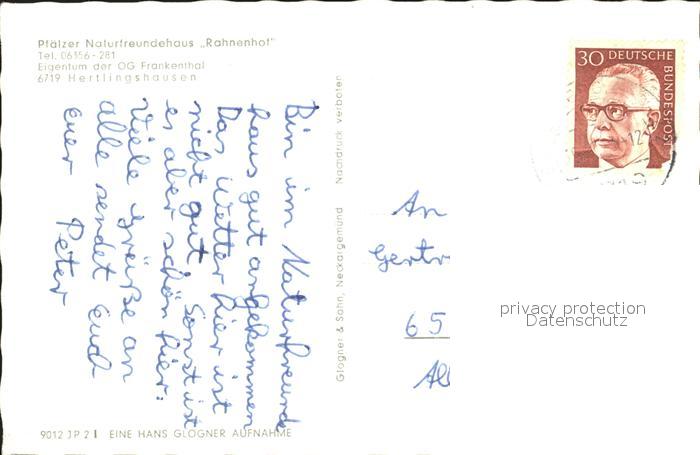 Pfälzer Naturfreundehaus „Rahnenhof"
Tel. 06356-281
Eigentum der OG Frankenthal
6719 Hertlingshausen
Bin im Naturfreunde
haus gut angekommen
Das Wetter hier ist
nicht gut. Sonst ist
es aber schön hier.
Viele Grüße an
alle sendet Euch
euer Peter
Glogner & Sohn, Neckargemünd Nachdruck verboten
30 DEUTSCHE
BUNDESPOST
An
Gertr
65
privacy protection
Datenschutz
9012 JP 2 EINE HANS GLOGNER AUFNAHME